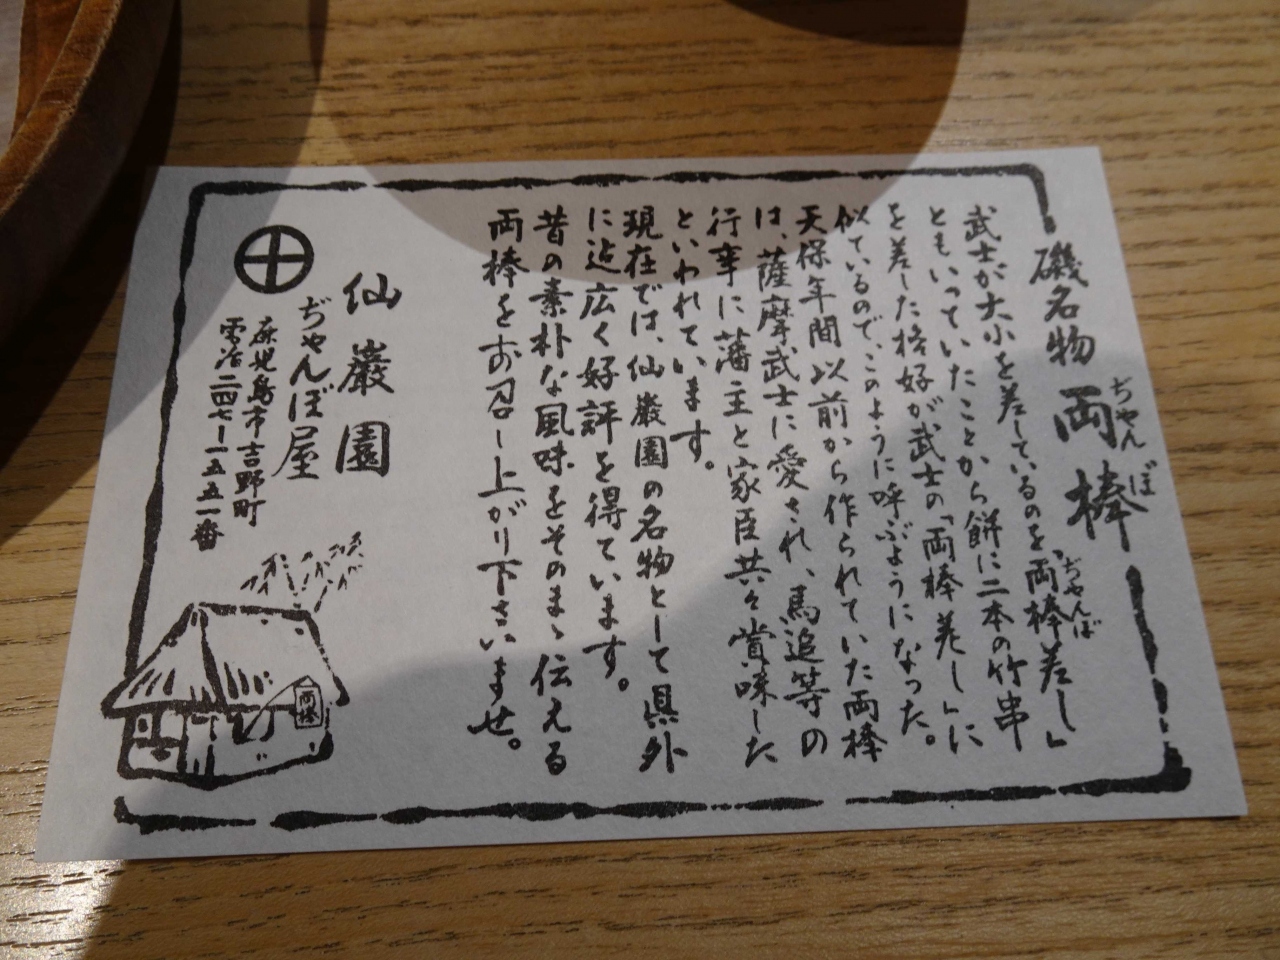 磯名物 両棒
ぢゃんぼ
武士が大小を差しているのを「両棒差し」
ぢゃんぼ
ともいっていたことから餅に二本の竹串
を差した格好が武士の「両棒差し」に
似ているので、このように呼ぶようになった。
天保年間以前から作られていた両棒
は、薩摩武士に愛され、馬追等の
行事に藩主と家臣共々賞味した
といわれています。
現在では、仙巌園の名物として県外
に迄広く好評を得ています。
昔の素朴な風味をそのまゝ伝える
両棒をお召し上がり下さいませ。
仙巖園
ぢゃんぼ屋
鹿児島市吉野町
電話二四七ー一五五一番
両棒